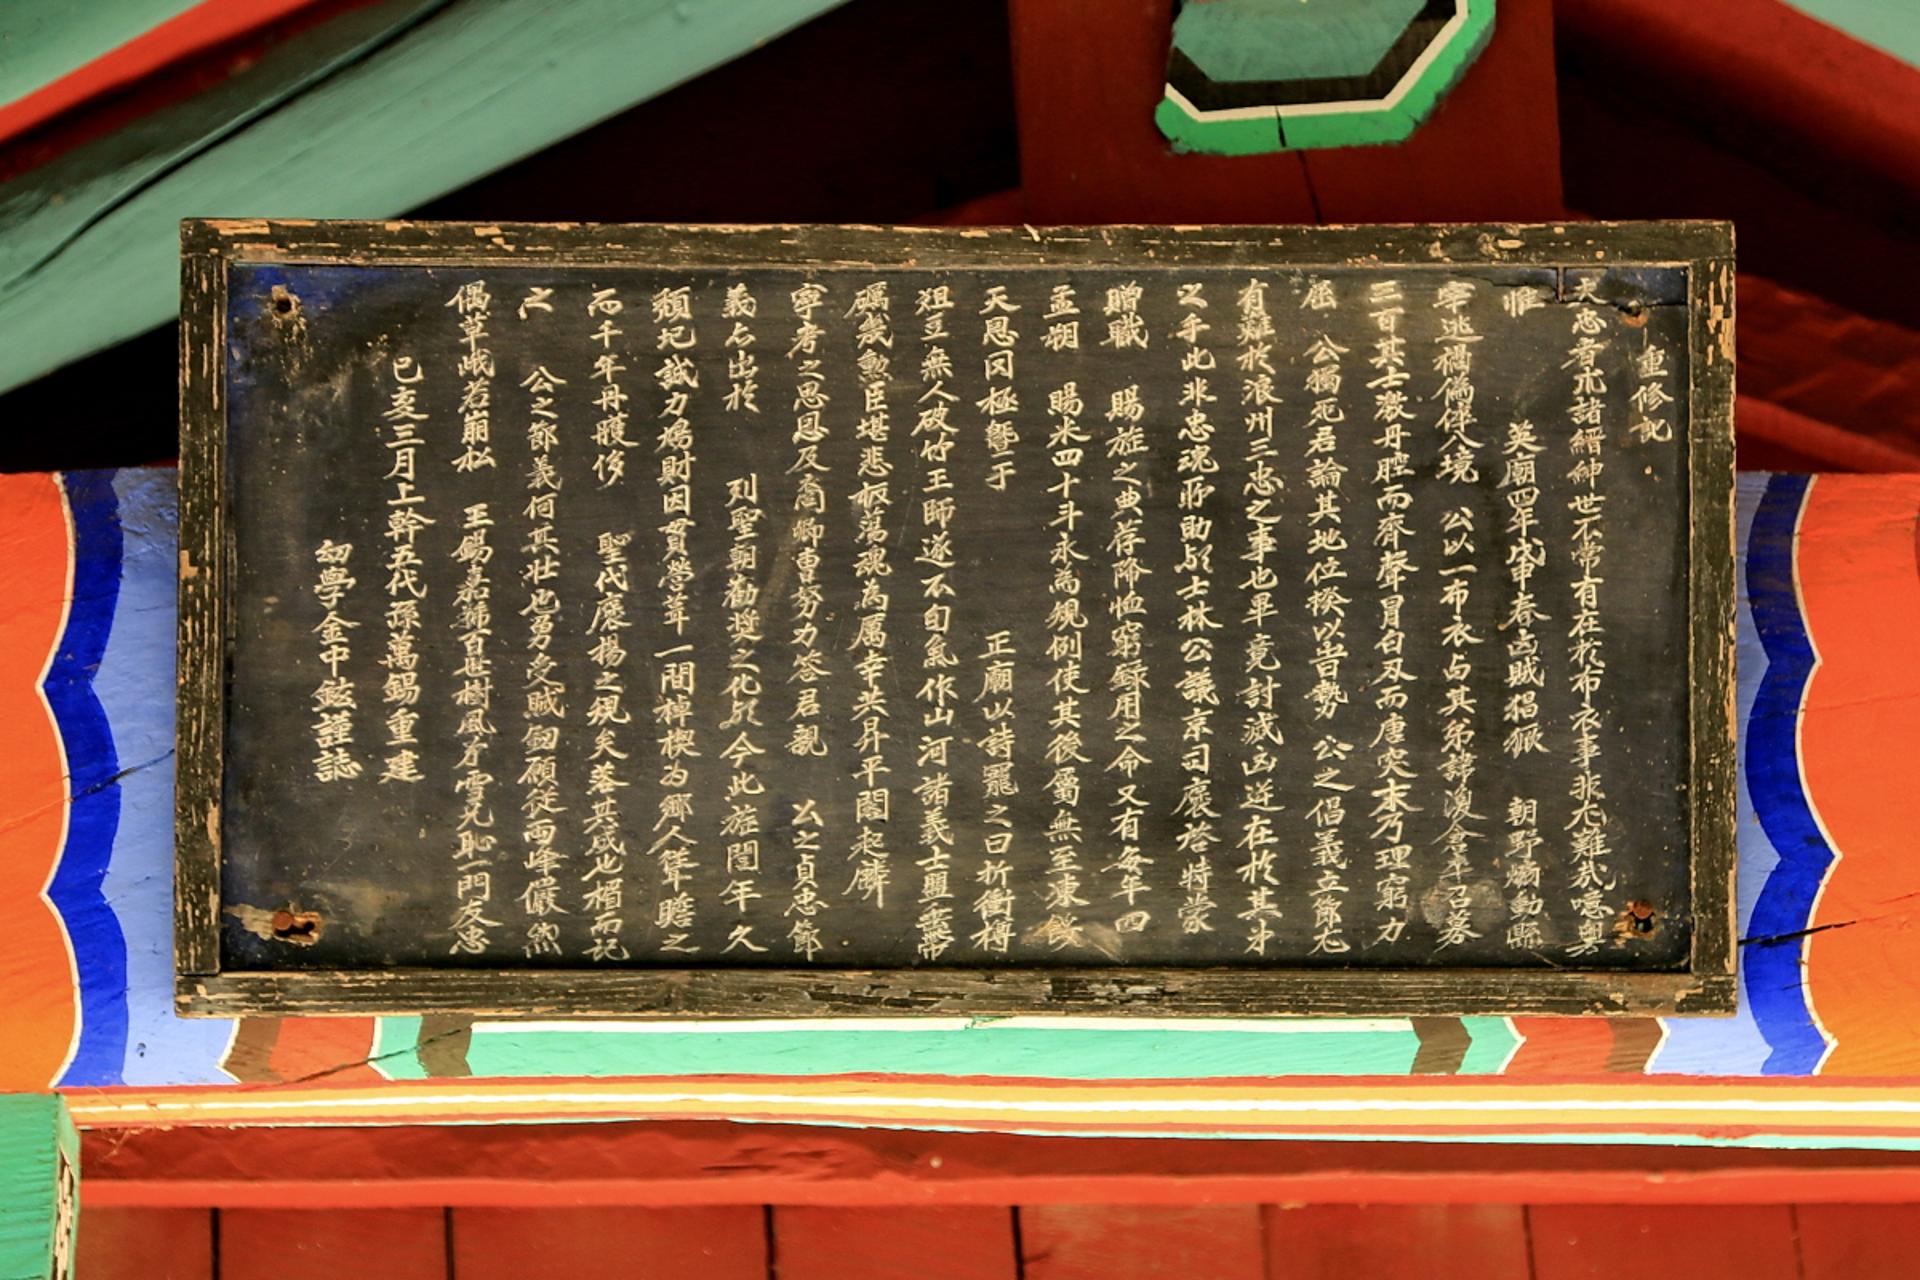 重修記
夫忠者求諸縉紳世不常有在於布衣事非尤難哉噫粤
惟 英廟四年戊申春凶賊猖獗 朝野煽動縣
宰逃禍倫偉八境 公以一布衣与其弟諱漢會率召募
三百其士激丹腔而齊聲冒白刃而唐突末乃理窮力
屈 公獨死君論其地位揆以昔勢 公之倡義立節尤
有難於浪州三忠之事也畢竟討滅凶逆在於其弟
之手此非忠魂所助歟士林公議京司褒啓特蒙
贈職 賜旌之典荐降恤窮錄用之命又有每年四
孟朔 賜米四十斗永爲䂓例使其後屬無至凍餒
天恩罔極曁于 正廟以詩寵之曰折衝樽
俎豆無人破竹王師遂不旬氣作山河諸義士盟垂帶
礪幾勲臣堪悲板蕩魂爲厲幸共昇平閣起麟
寧考之思恩及裔卿曺努力答君親 公之貞忠節
義名出於 列聖朝勸奬之化歟今此旌閭年久
頹圮誠力鳩財因貫營葺一間棹楔为鄉人聳瞻之
而千年丹雘侈 聖代褒揚之䂓矣葢其成也楣而記
之 公之節義何其壯也勇受賊釼頭從両峰嚴煞
偶草峨若崩松 王錫嘉號百世樹風矛雪兄恥一門友忠
己亥三月上幹五代孫萬錫重建
幼學金中鉉謹誌